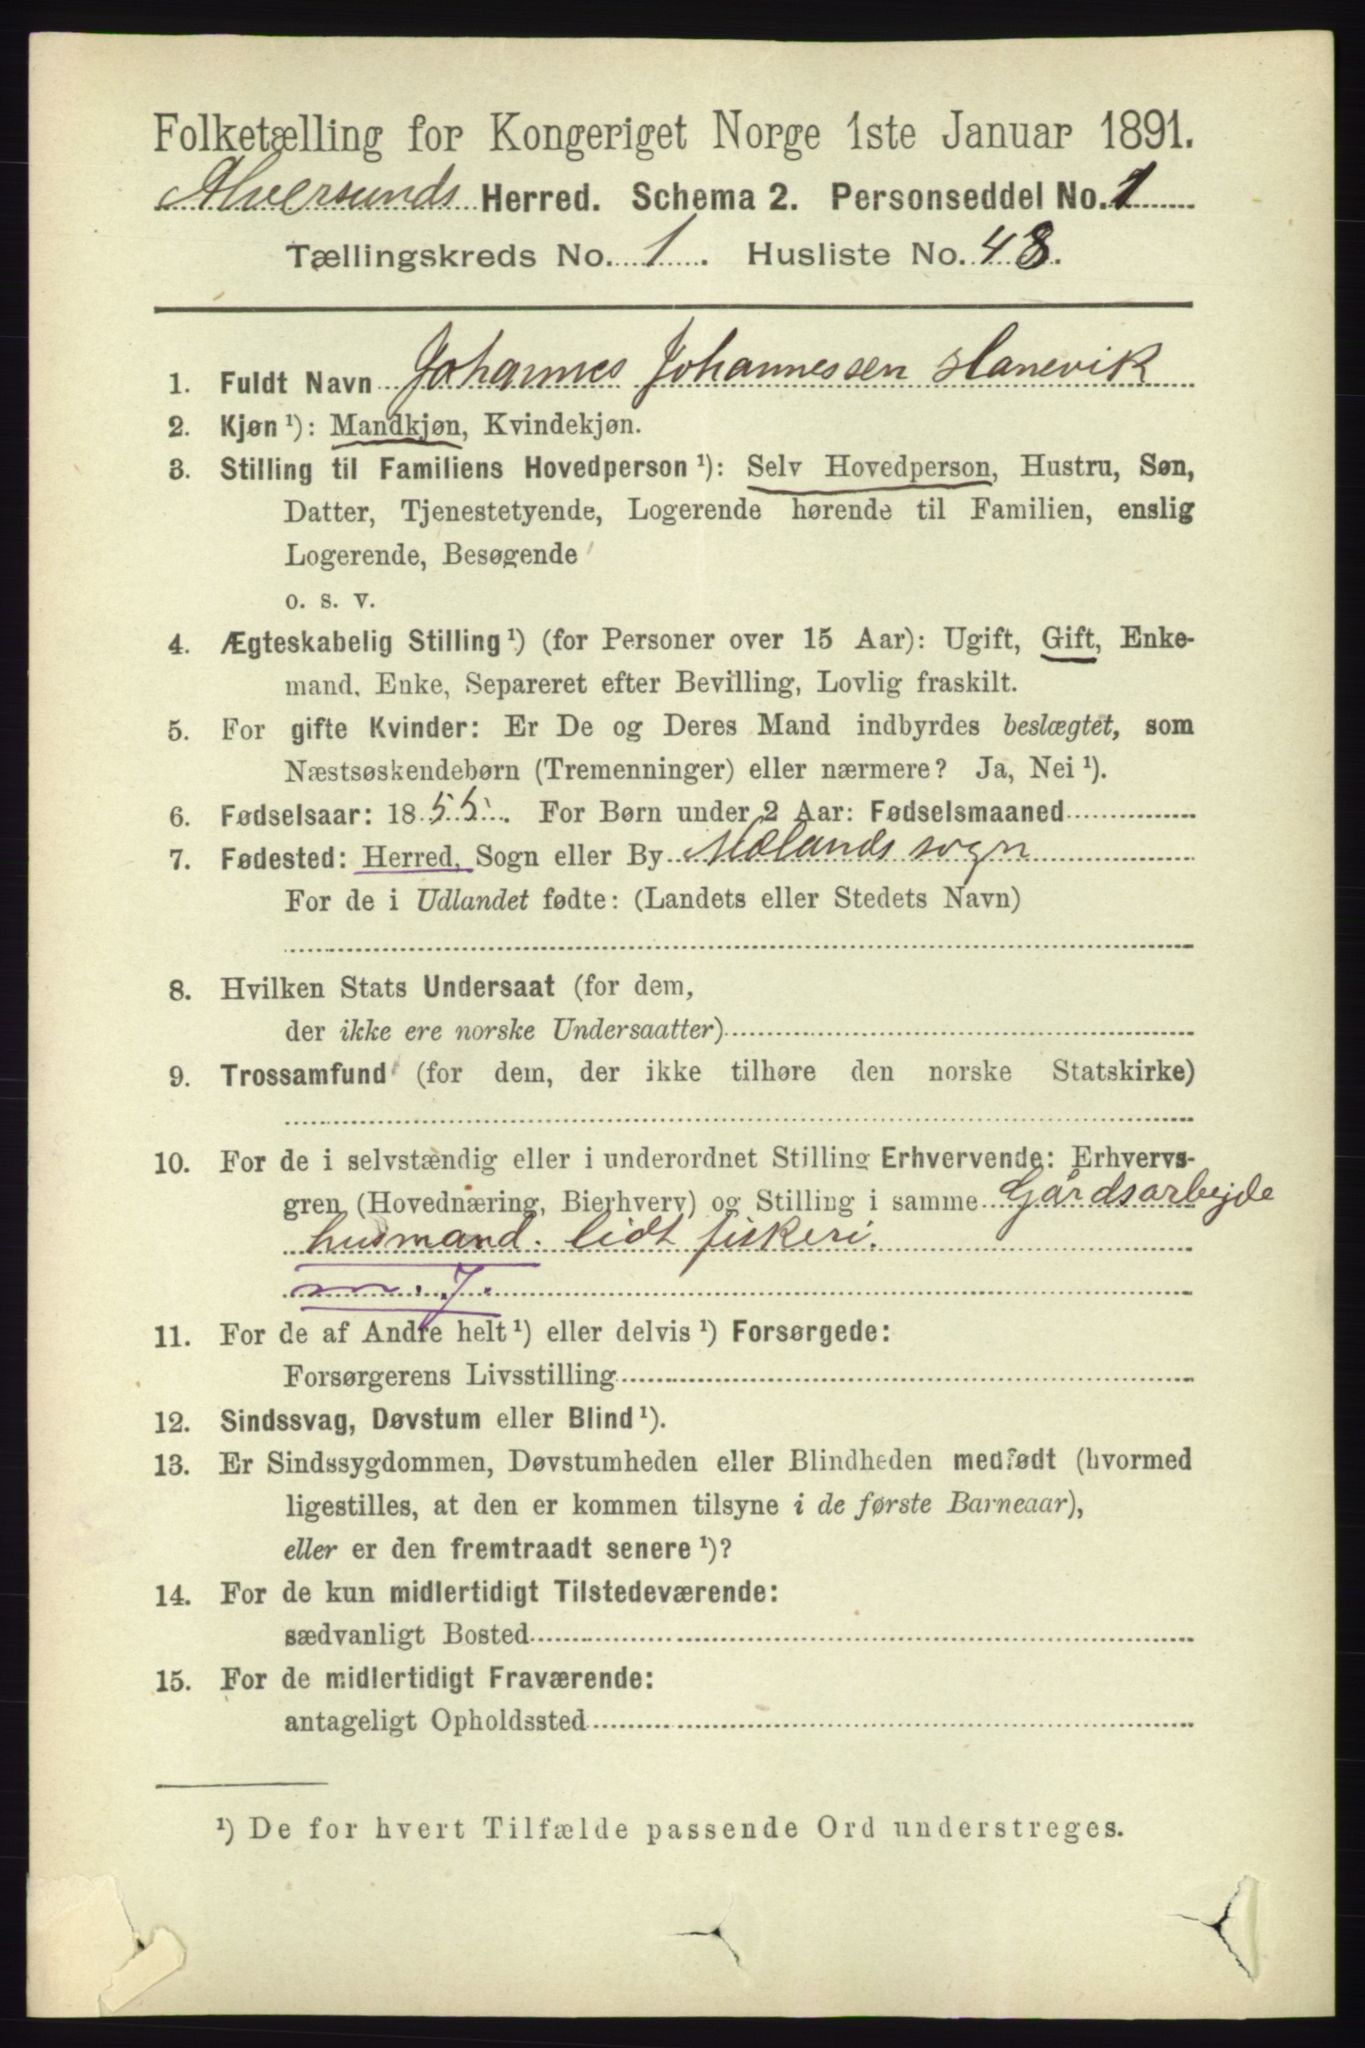 Folketælling for Kongeriget Norge 1ste Januar 1891.
Alversunds Herred. Schema 2. Personseddel No. 1
Tællingskreds No. 1. Husliste No. 48.
1. Fuldt Navn Johannes Johannessen Hanevik
2. Kjøn¹): Mandkjøn, Kvindekjøn.
3. Stilling til Familiens Hovedperson¹): Selv Hovedperson, Hustru, Søn,
Datter, Tjenestetyende, Logerende hørende til Familien, enslig
Logerende, Besøgende
o. s. v.
4. Ægteskabelig Stilling¹) (for Personer over 15 Aar): Ugift, Gift, Enke-
mand, Enke, Separeret efter Bevilling, Lovlig fraskilt.
5. For gifte Kvinder: Er De og Deres Mand indbyrdes beslægtet, som
Næstsøskendebørn (Tremenninger) eller nærmere? Ja, Nei¹).
6. Fødselsaar: 1855. For Børn under 2 Aar: Fødselsmaaned
7. Fødested: Herred, Sogn eller By Mælands sogn
For de i Udlandet fødte: (Landets eller Stedets Navn)
8. Hvilken Stats Undersaat (for dem,
der ikke ere norske Undersaatter)
9. Trossamfund (for dem, der ikke tilhøre den norske Statskirke)
10. For de i selvstændig eller i underordnet Stilling Erhvervende: Erhvervs-
gren (Hovednæring, Bierhverv) og Stilling i samme Gårdsarbejde
husmand. lidt fiskeri.
m. J.
11. For de af Andre helt¹) eller delvis¹) Forsørgede:
Forsørgerens Livsstilling
12. Sindssvag, Døvstum eller Blind¹).
13. Er Sindssygdommen, Døvstumheden eller Blindheden medfødt (hvormed
ligestilles, at den er kommen tilsyne i de første Barneaar),
eller er den fremtraadt senere¹)?
14. For de kun midlertidigt Tilstedeværende:
sædvanligt Bosted
15. For de midlertidigt Fraværende:
antageligt Opholdssted
¹) De for hvert Tilfælde passende Ord understreges.